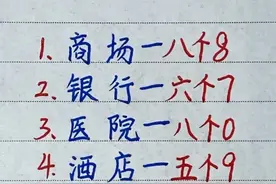 1. 商场一八个8
2. 银行一六个7
3. 医院一八个0
4. 酒店一五个9